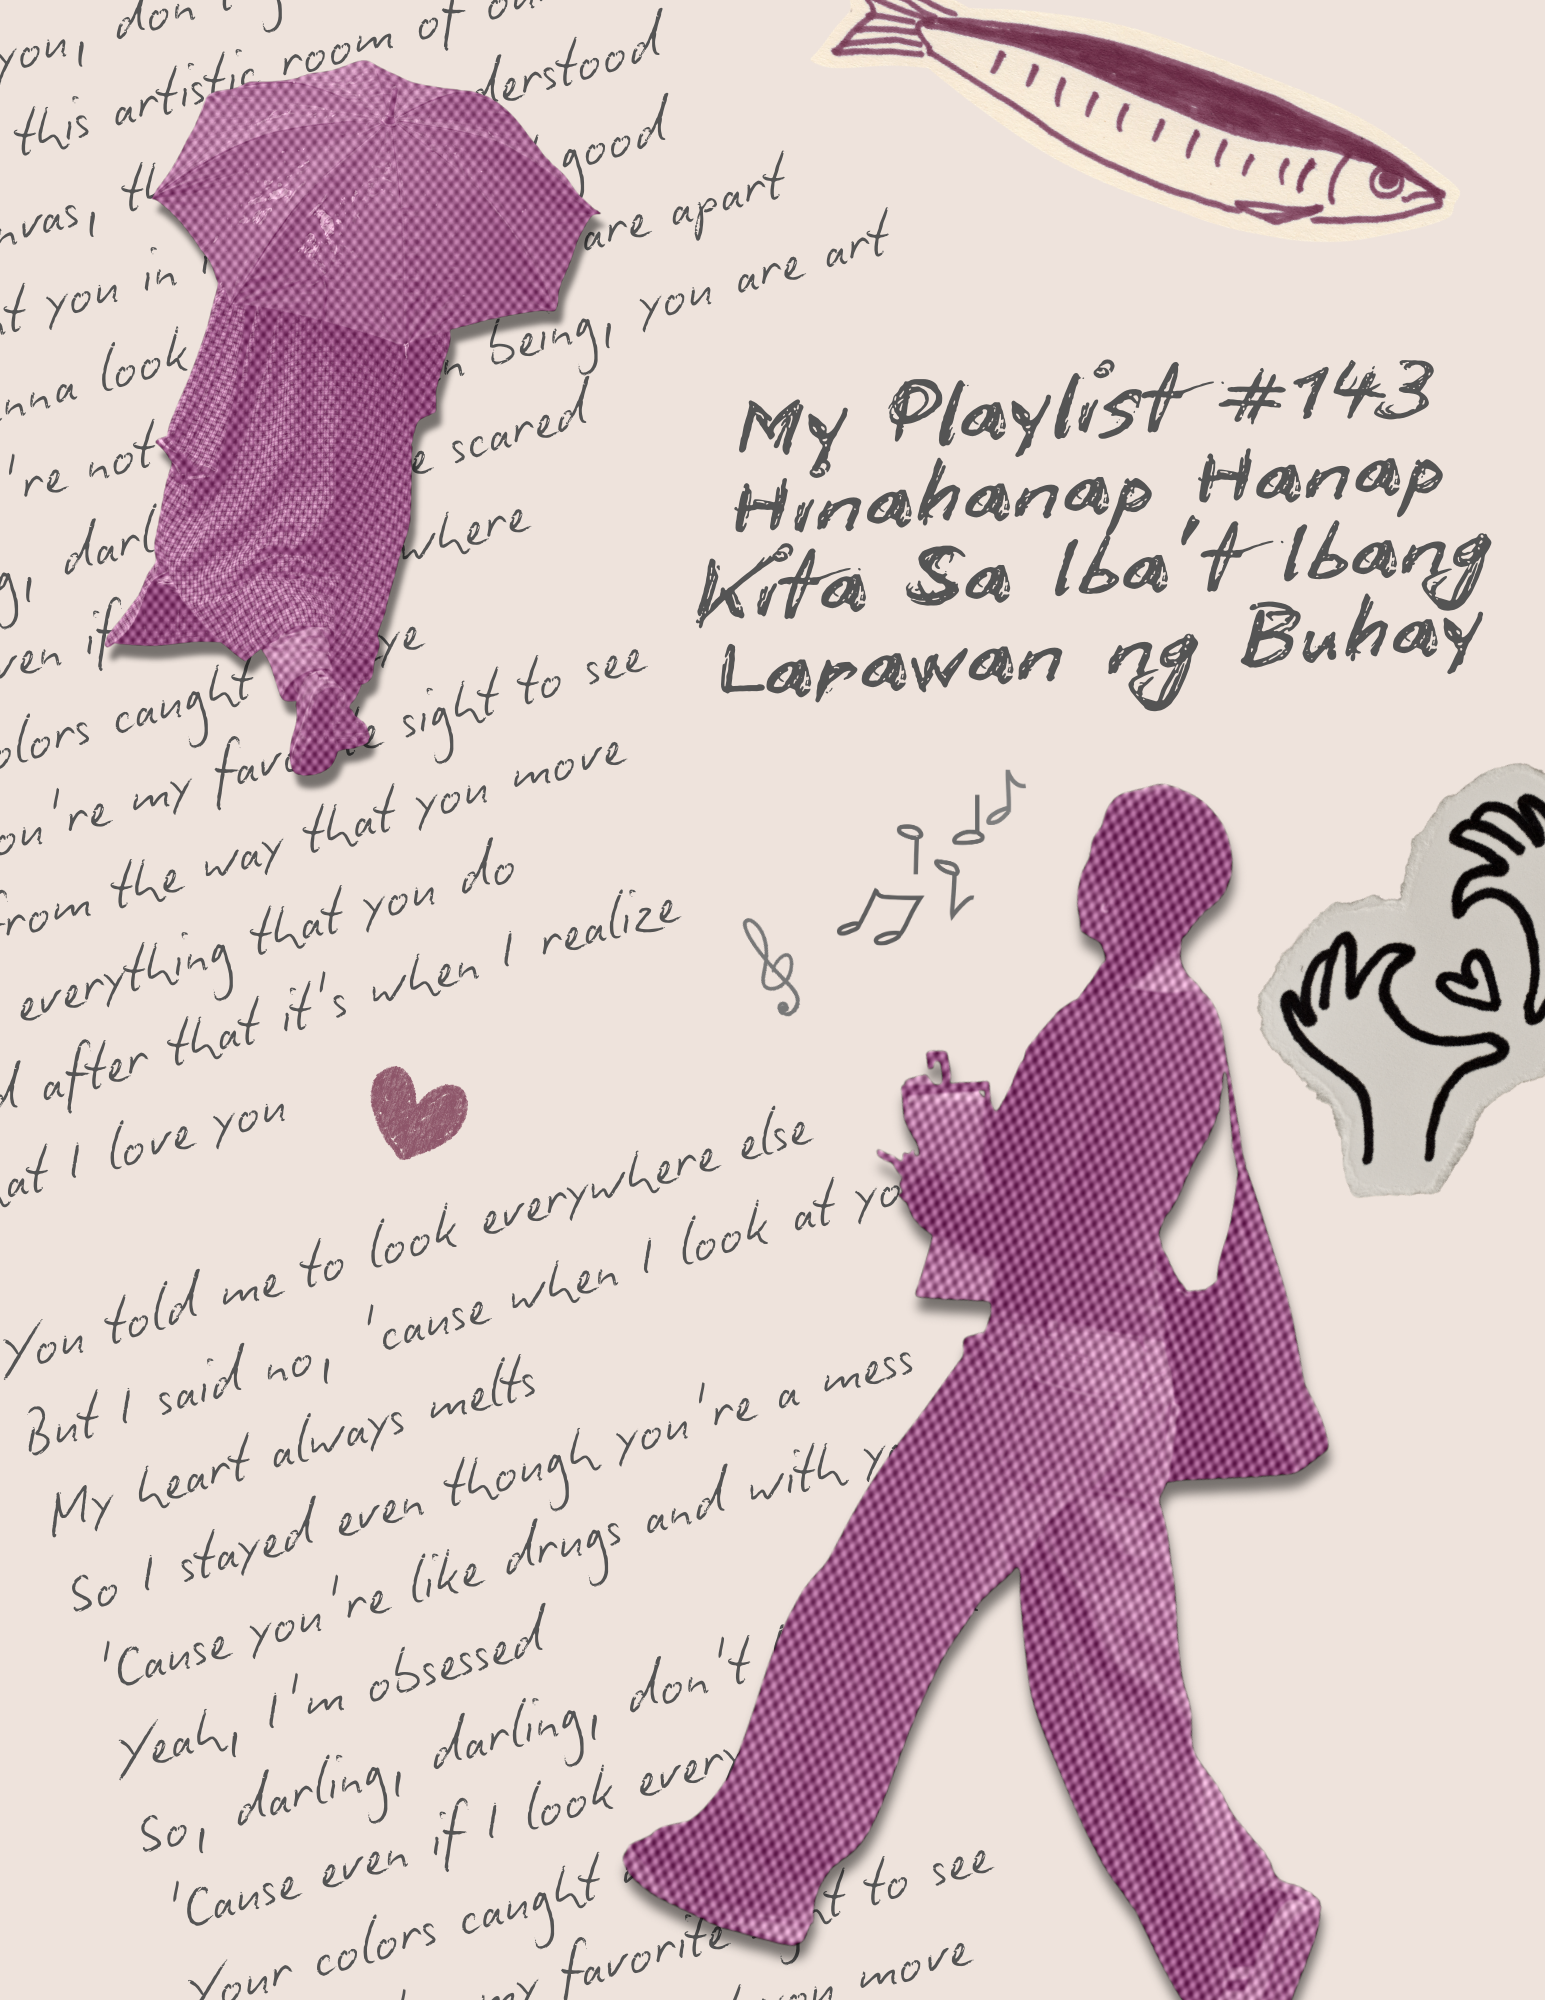 you, don't
this artistic room of
derstood
nvas, good
t you in are apart
anna look being, you are art
're not scared
g, darl where
ven if ye
olors caught
ou're my favo sight to see
from the way that you move
everything that you do
d after that it's when I realize
hat I love you
My Playlist #143
Hinahanap Hanap
Kita Sa Iba't Ibang
Larawan ng Buhay
You told me to look everywhere else
But I said no, 'cause when I look at yo
My heart always melts
So I stayed even though you're a mess
'Cause you're like drugs and with y
Yeah, I'm obsessed
So, darling, darling, don't
'Cause even if I look every
Your colors caught t to see
my favorite
you move